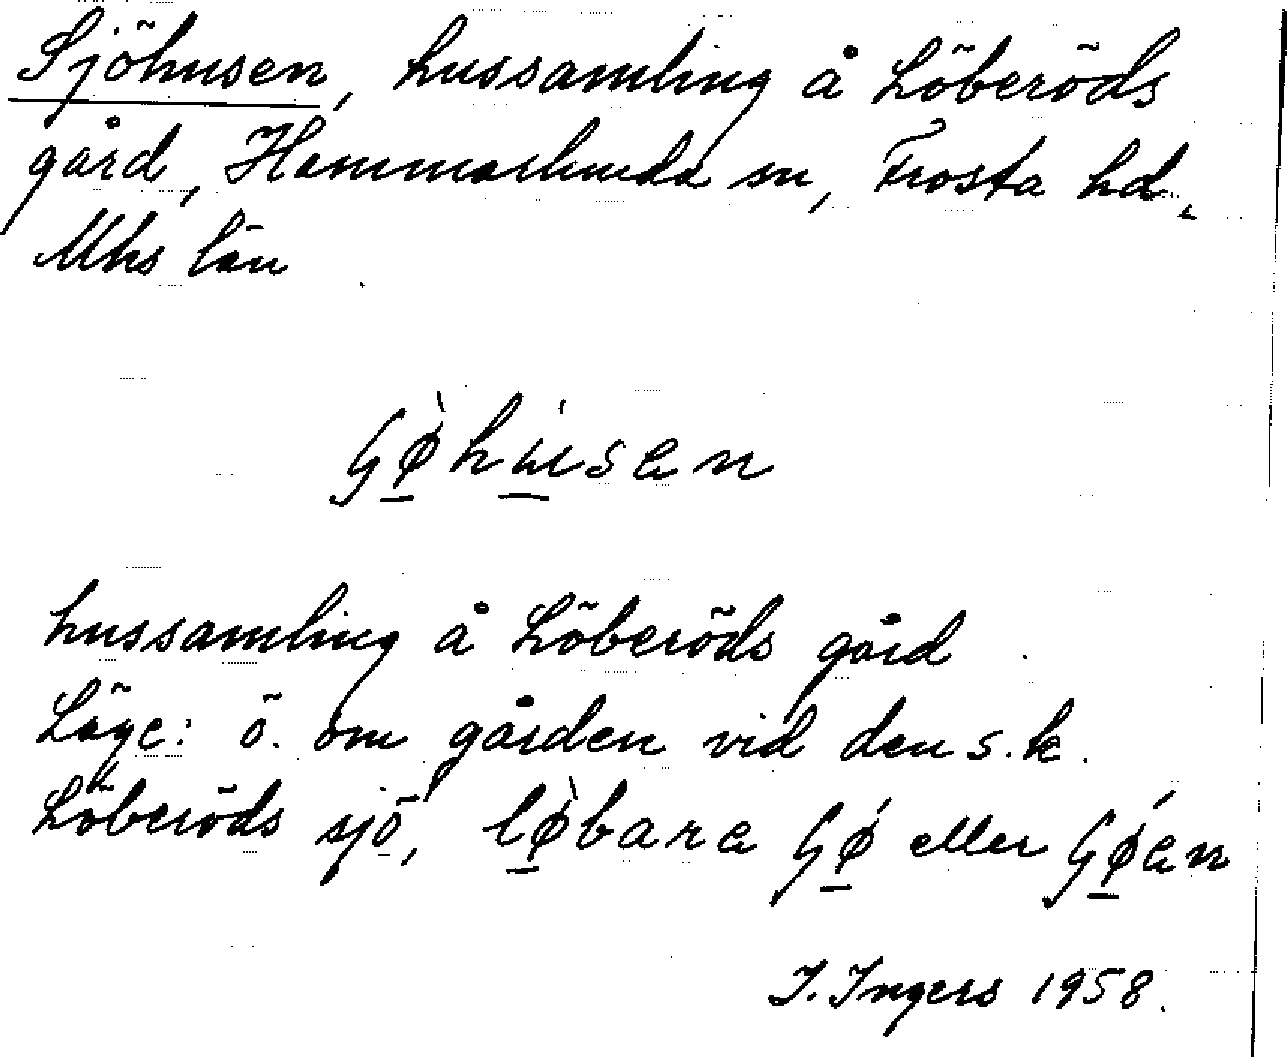 Sjöhusen, hussamling å Löberöds
gård, Hammarlunda sn, Frosta hd,
Mhs län
ʃø̠̀hu̠̇sen
hussamling å Löberöds gård
Läge: ö. om gården vid den s.k.
Löberöds sjö, lø̠̀bare ʃǿ̠ eller ʃǿ̠en
I. Ingers 1958.